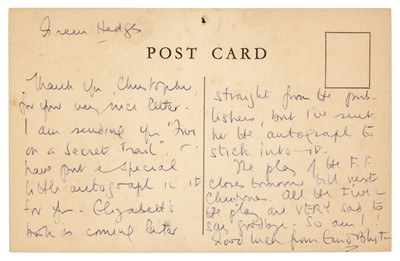 Green Hedges
POST CARD
Thank you Christopher,
for your very nice letter.
I am sending you "Five
on a Secret Trail". I
have put a special
little autograph in it
for you. Elizabeth's
book is coming later
straight from the pub-
lishers, but I've sent
her the autograph to
stick into it.
The play of the F.F.
closes tomorrow till next
Christmas. All the Five in
the play are VERY sad to
say goodbye. So am I!
Good luck from Enid Blyton